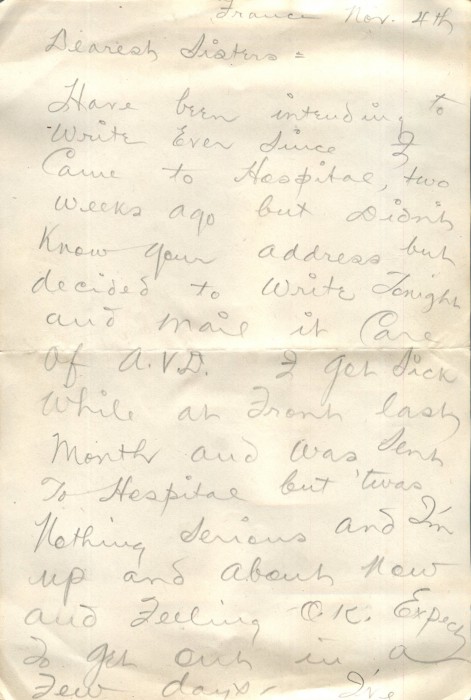 France Nov. 4th
Dearest Sisters =
Have been intending to
Write Ever Since I
Came to Hospital, two
weeks ago but Didn't
Know your address but
decided to Write Tonight
and mail it Care
Of A.V.D. I get Sick
While at Front last
Month and was Sent
To Hospital but 'twas
Nothing Serious and I'm
up and about Now
and Feeling O.K. Expect
To get out in a
Few days. I've